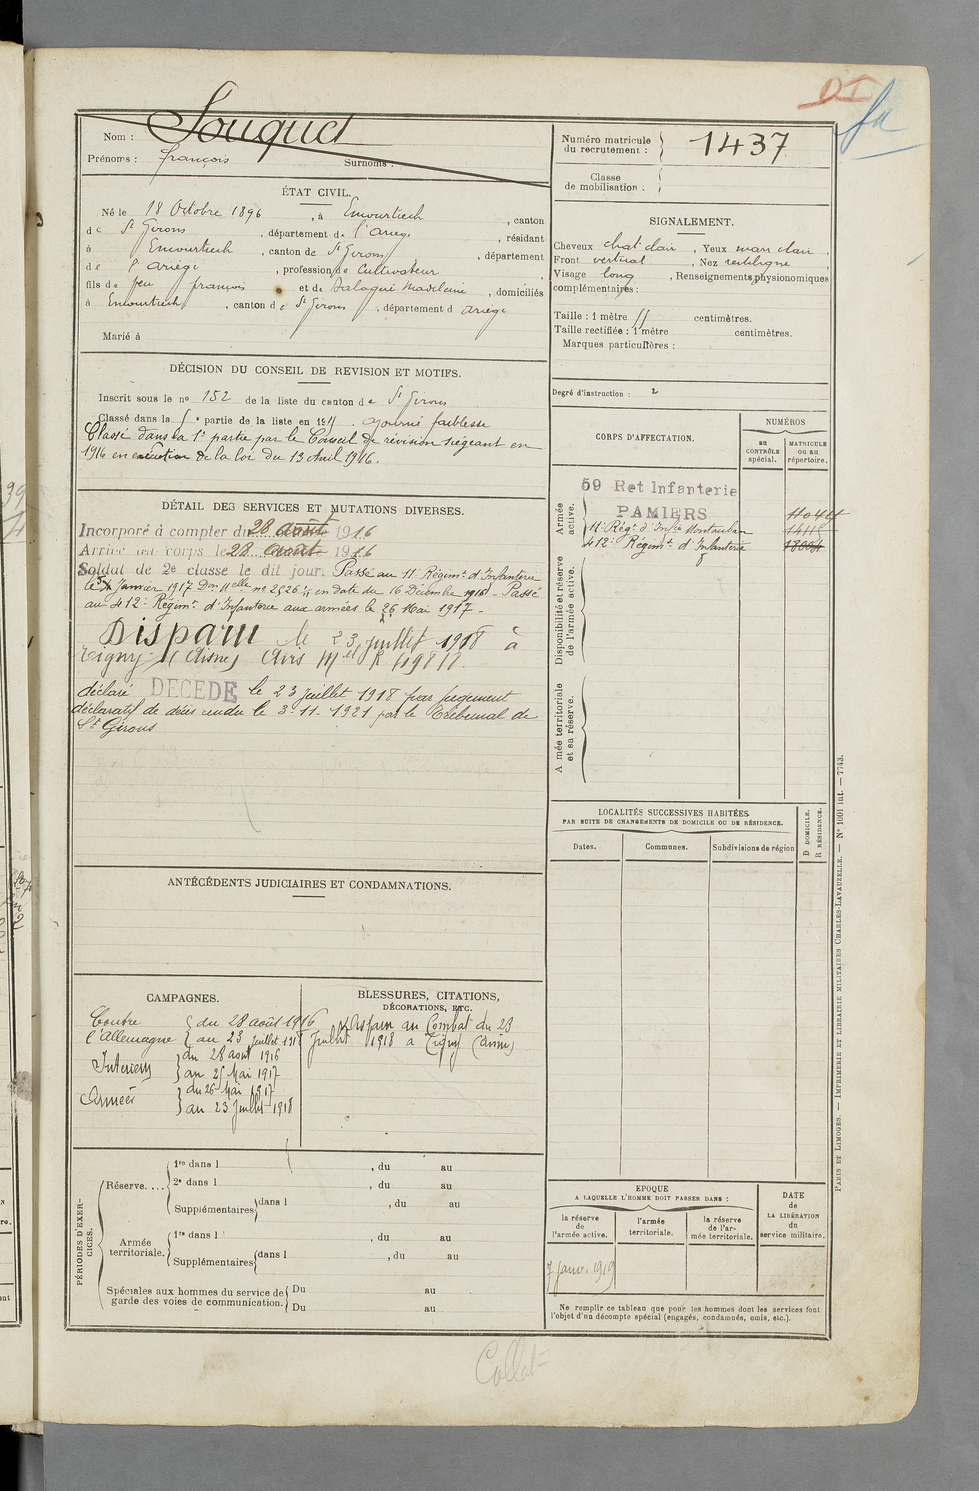 DI
Nom : Souquet
Prénoms : françois Surnoms :
Numéro matricule du recrutement : 1437
Classe de mobilisation :
ÉTAT CIVIL.
Né le 18 Octobre 1896, à Encourtiech, canton
de St Girons, département de l'Ariège, résidant
à Encourtiech, canton de St Girons, département
de l'Ariège, profession de Cultivateur
fils de feu françois et de Salaqué Madeleine, domiciliés
à Encourtiech, canton de St Girons, département d Ariège
Marié à
SIGNALEMENT.
Cheveux chat clair, Yeux mar clair,
Front vertical, Nez rectiligne,
Visage long, Renseignements physionomiques
complémentaires :
Taille : 1 mètre centimètres.
Taille rectifiée : 1 mètre centimètres.
Marques particulières :
Degré d'instruction : 2
DÉCISION DU CONSEIL DE REVISION ET MOTIFS.
Inscrit sous le no 152 de la liste du canton de St Girons
Classé dans la partie de la liste en ajourné faiblesse
Classé dans la 1e partie par le Conseil de révision siégeant en
1916 en exécution de la loi du 13 Avril 1916.
DÉTAIL DES SERVICES ET MUTATIONS DIVERSES.
Incorporé à compter du 28 août 1916
Arrivé au corps le 28 août 1916
Soldat de 2e classe le dit jour. Passé au 11e Régimt d'Infanterie
le Janvier 1917 en date du 16 Décembre 1916 - Passé
au 412e Régimt d'Infanterie aux armées le 26 Mai 1917 -
Disparu le 23 juillet 1918 à
Tigny (Aisne) Avis
déclaré DECEDE le 23 juillet 1918 par jugement
déclaratif de décès rendu le 3-11-1921 par le Tribunal de
St Girons
CORPS D'AFFECTATION.
NUMÉROS
au CONTRÔLE spécial.
MATRICULE ou au répertoire.
Armée active.
59 Ret Infanterie
PAMIERS
11e Rég. d'Infrie Montauban
412e Régimt d'Infanterie
Disponibilité et réserve de l'armée active.
Armée territoriale et sa réserve.
LOCALITÉS SUCCESSIVES HABITÉES
PAR SUITE DE CHANGEMENTS DE DOMICILE OU DE RÉSIDENCE.
Dates. Communes. Subdivisions de région
D DOMICILE.
R RÉSIDENCE.
ANTÉCÉDENTS JUDICIAIRES ET CONDAMNATIONS.
CAMPAGNES.
Contre l'Allemagne du 28 août 1916
au 23 juillet 1918
Intérieur du 28 août 1916
au 25 Mai 1917
Armées du 26 Mai 1917
au 23 Juillet 1918
BLESSURES, CITATIONS,
DÉCORATIONS, ETC.
Disparu au Combat du 23
Juillet 1918 à Tigny (Aisne)
PÉRIODES D'EXERCICES.
Réserve....
1re dans l , du au
2e dans l , du au
Supplémentaires dans l , du au
Armée territoriale.
1re dans l , du au
Supplémentaires dans l , du au
Spéciales aux hommes du service de garde des voies de communication.
Du au
Du au
EPOQUE
A LAQUELLE L'HOMME DOIT PASSER DANS :
la réserve de l'armée active.
l'armée territoriale.
la réserve de l'armée territoriale.
DATE de LA LIBÉRATION du service militaire.
7 Janv. 1919
Ne remplir ce tableau que pour les hommes dont les services font
l'objet d'un décompte spécial (engagés, condamnés, omis, etc.).
PARIS ET LIMOGES. — IMPRIMERIE ET LIBRAIRIE MILITAIRES CHARLES-LAVAUZELLE. — No 1601 int. — 7743.